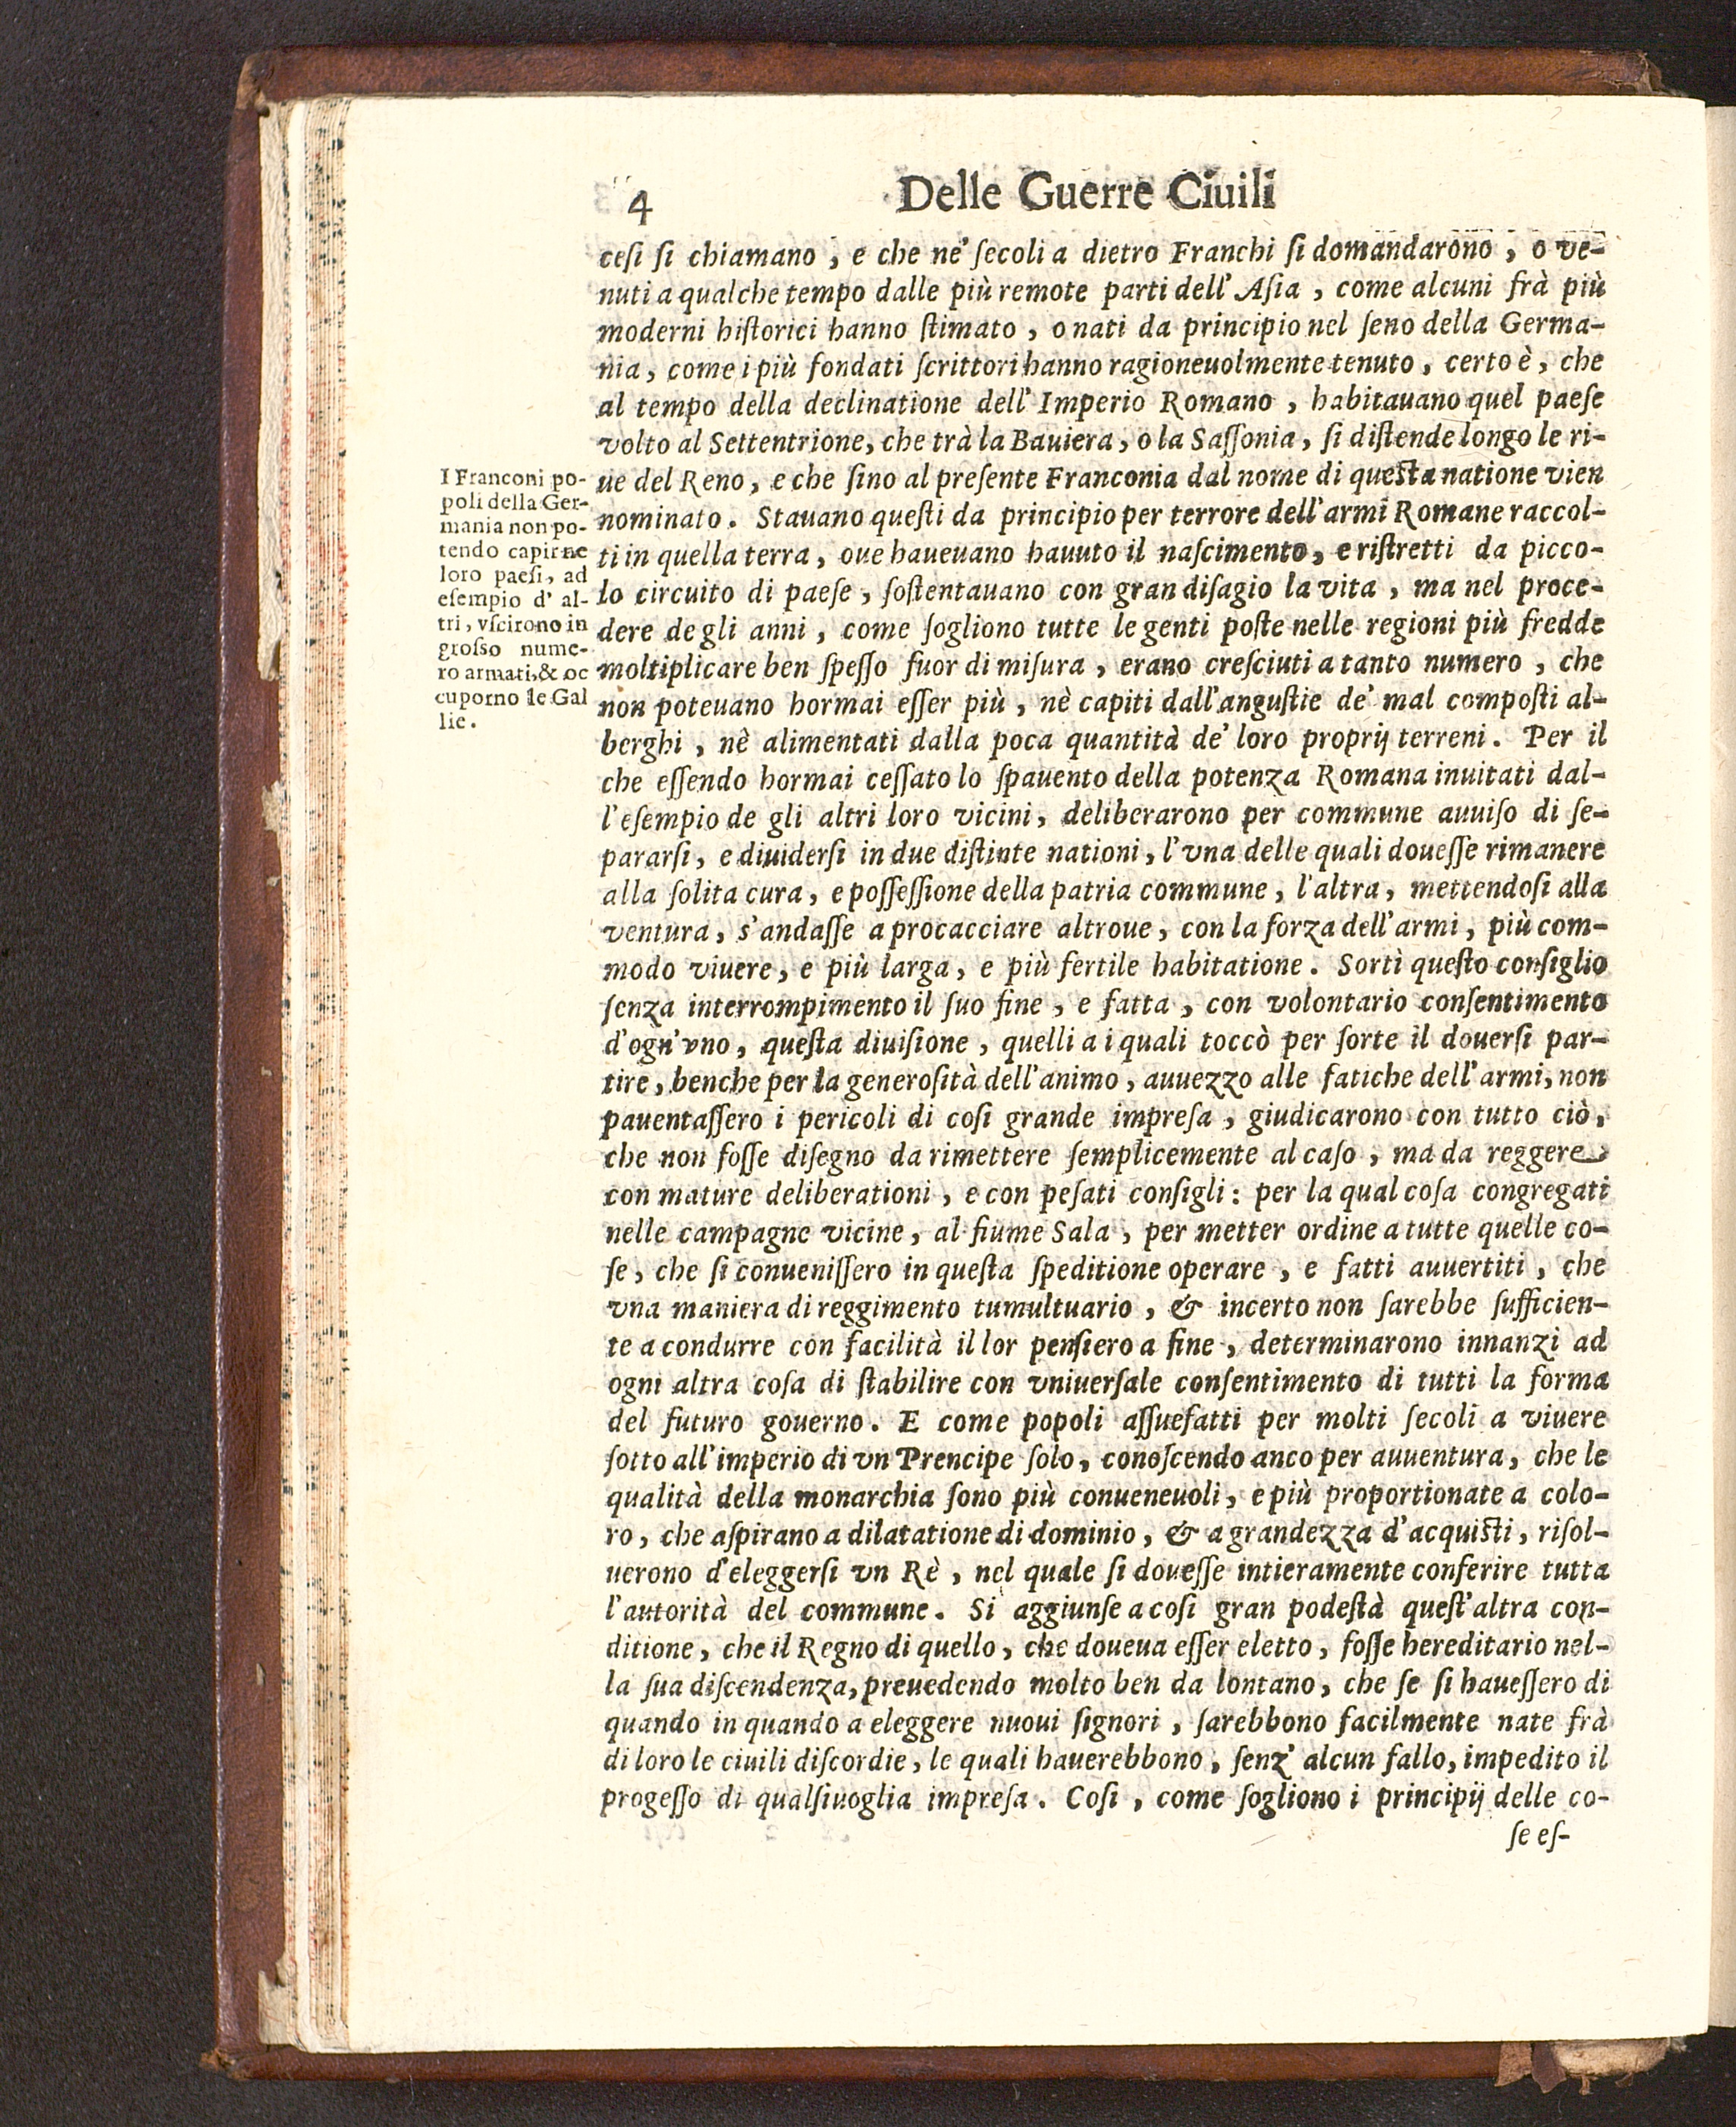 4
Delle Guerre Ciuili
ceſi ſi chiamano, e che ne' ſecoli a dietro Franchi ſi domandarono, o ve-
nuti a qualche tempo dalle più remote parti dell' Aſia, come alcuni frà più
moderni hiſtorici hanno ſtimato, o nati da principio nel ſeno della Germa-
nia, come i più fondati ſcrittori hanno ragioneuolmente tenuto, certo è, che
al tempo della declinatione dell' Imperio Romano, habitauano quel paeſe
volto al Settentrione, che trà la Bauiera, o la Saſſonia, ſi diſtende longo le ri-
ue del Reno, e che ſino al preſente Franconia dal nome di queſta natione vien
nominato. Stauano queſti da principio per terrore dell'armi Romane raccol-
ti in quella terra, oue haueuano hauuto il naſcimento, e riſtretti da picco-
lo circuito di paeſe, ſoſtentauano con gran diſagio la vita, ma nel proce-
dere de gli anni, come ſogliono tutte le genti poſte nelle regioni più fredde
moltiplicare ben ſpeſſo fuor di miſura, erano creſciuti a tanto numero, che
non poteuano hormai eſſer più, nè capiti dall'anguſtie de' mal compoſti al-
berghi, nè alimentati dalla poca quantità de' loro proprij terreni. Per il
che eſſendo hormai ceſſato lo ſpauento della potenza Romana inuitati dal-
l'eſempio de gli altri loro vicini, deliberarono per commune auuiſo di ſe-
pararſi, e diuiderſi in due diſtinte nationi, l'vna delle quali doueſſe rimanere
alla ſolita cura, e poſſeſſione della patria commune, l'altra, mettendoſi alla
ventura, s'andaſſe a procacciare altroue, con la forza dell'armi, più com-
modo viuere, e più larga, e più fertile habitatione. Sortì queſto conſiglio
ſenza interrompimento il ſuo fine, e fatta, con volontario conſentimento
d'ogn'vno, queſta diuiſione, quelli a i quali toccò per ſorte il douerſi par-
tire, benche per la generoſità dell'animo, auuezzo alle fatiche dell'armi, non
pauentaſſero i pericoli di coſi grande impreſa, giudicarono con tutto ciò,
che non foſſe diſegno da rimettere ſemplicemente al caſo, ma da reggere
con mature deliberationi, e con peſati conſigli: per la qual coſa congregati
nelle campagne vicine, al fiume Sala, per metter ordine a tutte quelle co-
ſe, che ſi conueniſſero in queſta ſpeditione operare, e fatti auuertiti, che
vna maniera di reggimento tumultuario, & incerto non ſarebbe ſufficien-
te a condurre con facilità il lor penſiero a fine, determinarono innanzi ad
ogni altra coſa di ſtabilire con vniuerſale conſentimento di tutti la forma
del futuro gouerno. E come popoli aſſuefatti per molti ſecoli a viuere
ſotto all'imperio di vn Prencipe ſolo, conoſcendo anco per auuentura, che le
qualità della monarchia ſono più conueneuoli, e più proportionate a colo-
ro, che aſpirano a dilatatione di dominio, & a grandezza d'acquiſti, riſol-
uerono d'eleggerſi vn Rè, nel quale ſi doueſſe intieramente conferire tutta
l'autorità del commune. Si aggiunſe a coſi gran podeſtà queſt'altra con-
ditione, che il Regno di quello, che doueua eſſer eletto, foſſe hereditario nel-
la ſua diſcendenza, preuedendo molto ben da lontano, che ſe ſi haueſſero di
quando in quando a eleggere nuoui ſignori, ſarebbono facilmente nate frà
di loro le ciuili diſcordie, le quali hauerebbono, ſenz' alcun fallo, impedito il
progeſſo di qualſiuoglia impreſa. Coſi, come ſogliono i principij delle co-
ſe eſ-
I Franconi po-
poli della Ger-
mania non po-
tendo capir ne
loro paeſi, ad
eſempio d' al-
tri, vſcirono in
groſso nume-
ro armati, & oc
cuporno le Gal
lie.